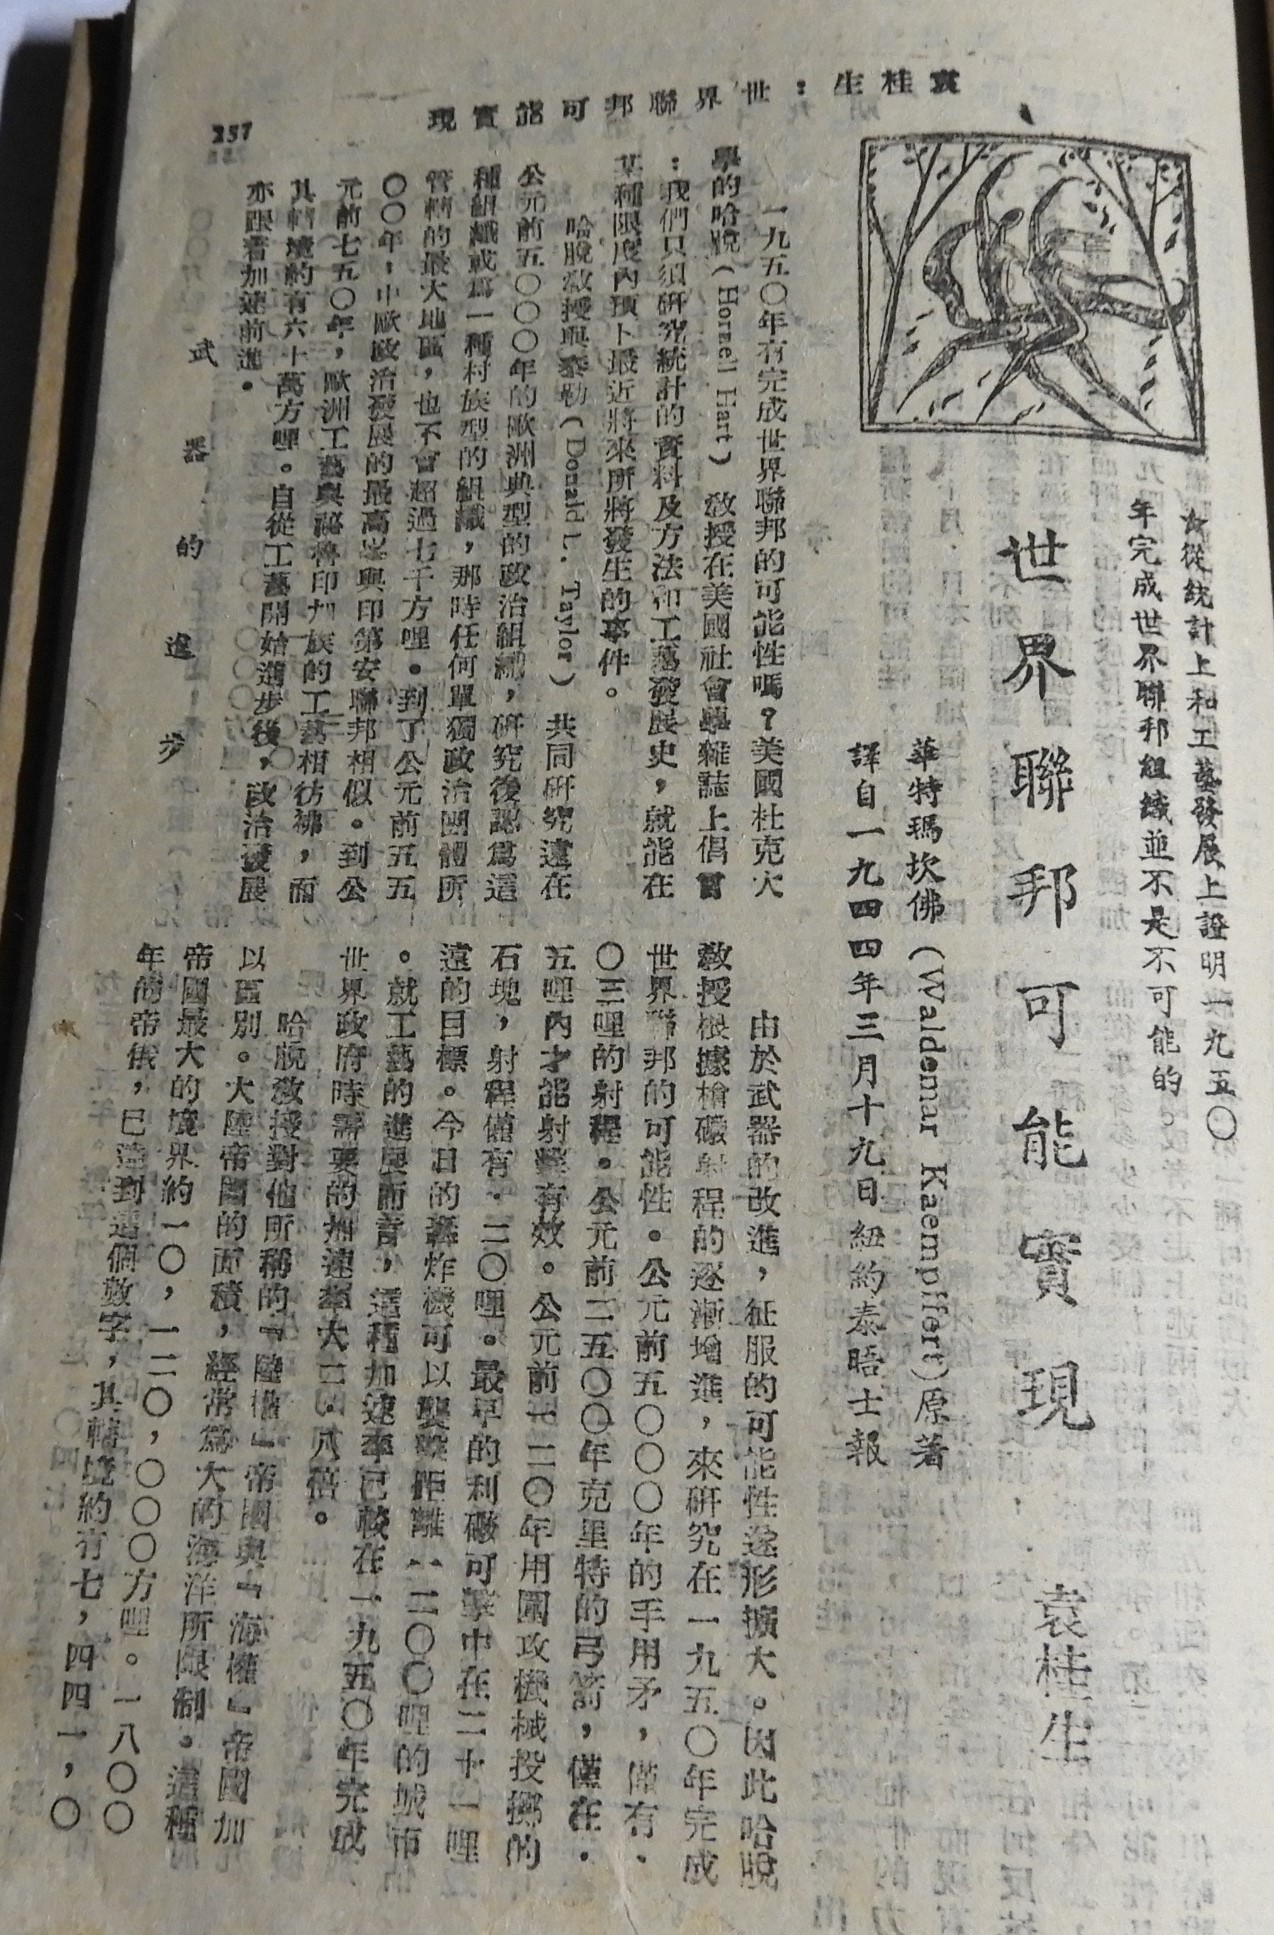 袁桂生：世界聯邦可能實現
257
☆從統計上和工藝發展上證明一九五〇
年完成世界聯邦組織並不是不可能的。
世界聯邦可能實現
袁桂生
華特瑪坎佛（Waldemar Kaempffert）原著
譯自一九四四年三月十九日紐約泰晤士報
一九五〇年有完成世界聯邦的可能性嗎？美國杜克大
學的哈脫（Hornel Hart）教授在美國社會學雜誌上倡言
：我們只須研究統計的資料及方法和工藝發展史，就能在
某種限度內預卜最近將來所將發生的事件。
哈脫教授與泰勒（Donald L. Taylor）共同研究遠在
公元前五〇〇〇年的歐洲典型的政治組織，研究後認爲這
種組織或爲一種村族型的組織，那時任何單獨政治團體所
管轄的最大地區，也不會超過七千方哩。到了公元前五五
〇〇年，中歐政治發展的最高峯與印第安聯邦相似。到公
元前七五〇年，歐洲工藝與祕魯印加族的工藝相彷彿，而
其轄境約有六十萬方哩。自從工藝開始進步後，政治發展
亦跟着加速前進。
武器的進步
由於武器的改進，征服的可能性遂形擴大。因此哈脫
教授根據槍礮射程的逐漸增進，來研究在一九五〇年完成
世界聯邦的可能性。公元前五〇〇〇年的手用矛，僅有．
〇三哩的射程。公元前二五〇〇年克里特的弓箭，僅在．
五哩內才能射擊有效。公元前一二〇年用圍攻機械投擲的
石塊，射程僅有．二〇哩。最早的利礮可擊中在二十一哩
遠的目標。今日的轟炸機可以襲擊距離一二〇〇哩的城市
。就工藝的進展而言，這種加速率已較在一九五〇年完成
世界政府時需要的加速率大二．八倍。
哈脫教授對他所稱的『陸權』帝國與『海權』帝國加
以區別。大陸帝國的面積，經常爲大的海洋所限制。這種
帝國最大的境界約一〇，一二〇，〇〇〇方哩。一八〇〇
年的帝俄，已達到這個數字，其轄境約有七，四四一，〇